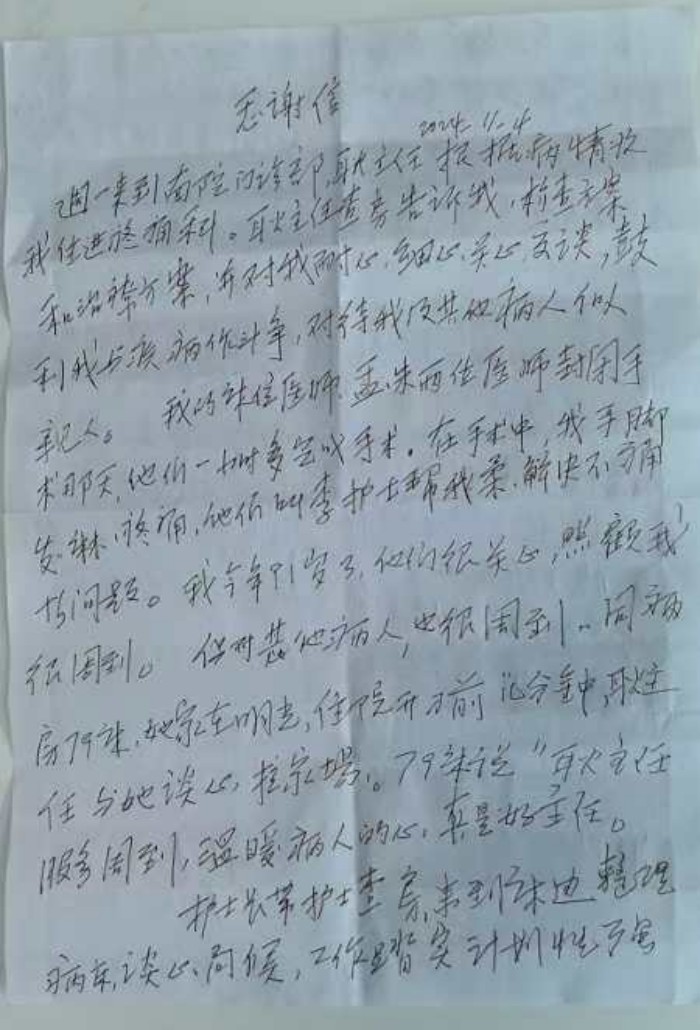 感谢信
2024.11-4
週一来到南院门诊部耿主任根据病情收
我住进疼痛科。耿主任查房告诉我,检查方案
和治疗方案,并对我耐心、细心、关心、交谈,鼓
利我与疾病作斗争,对待我及其他病人似
亲人。 我的床位医师、孟、朱两位医师封闭手
术那天,他们一小时多完成手术。在手术中,我手脚
发麻、疼痛,他们叫李护士帮我柔、解决不痛
的问题。我今年91岁了,他们很关心,照顾我
很周到。但对其他病人,也很周到..同病
房79床,她家在明光,住院开刀前几分钟,耿主
任与她谈心,拉家常。79床说"耿主任
服务周到,温暖病人的心,真是好主任。
护士长带护士查房,来到床边整理
病床,谈心、问候,工作踏实计划性强